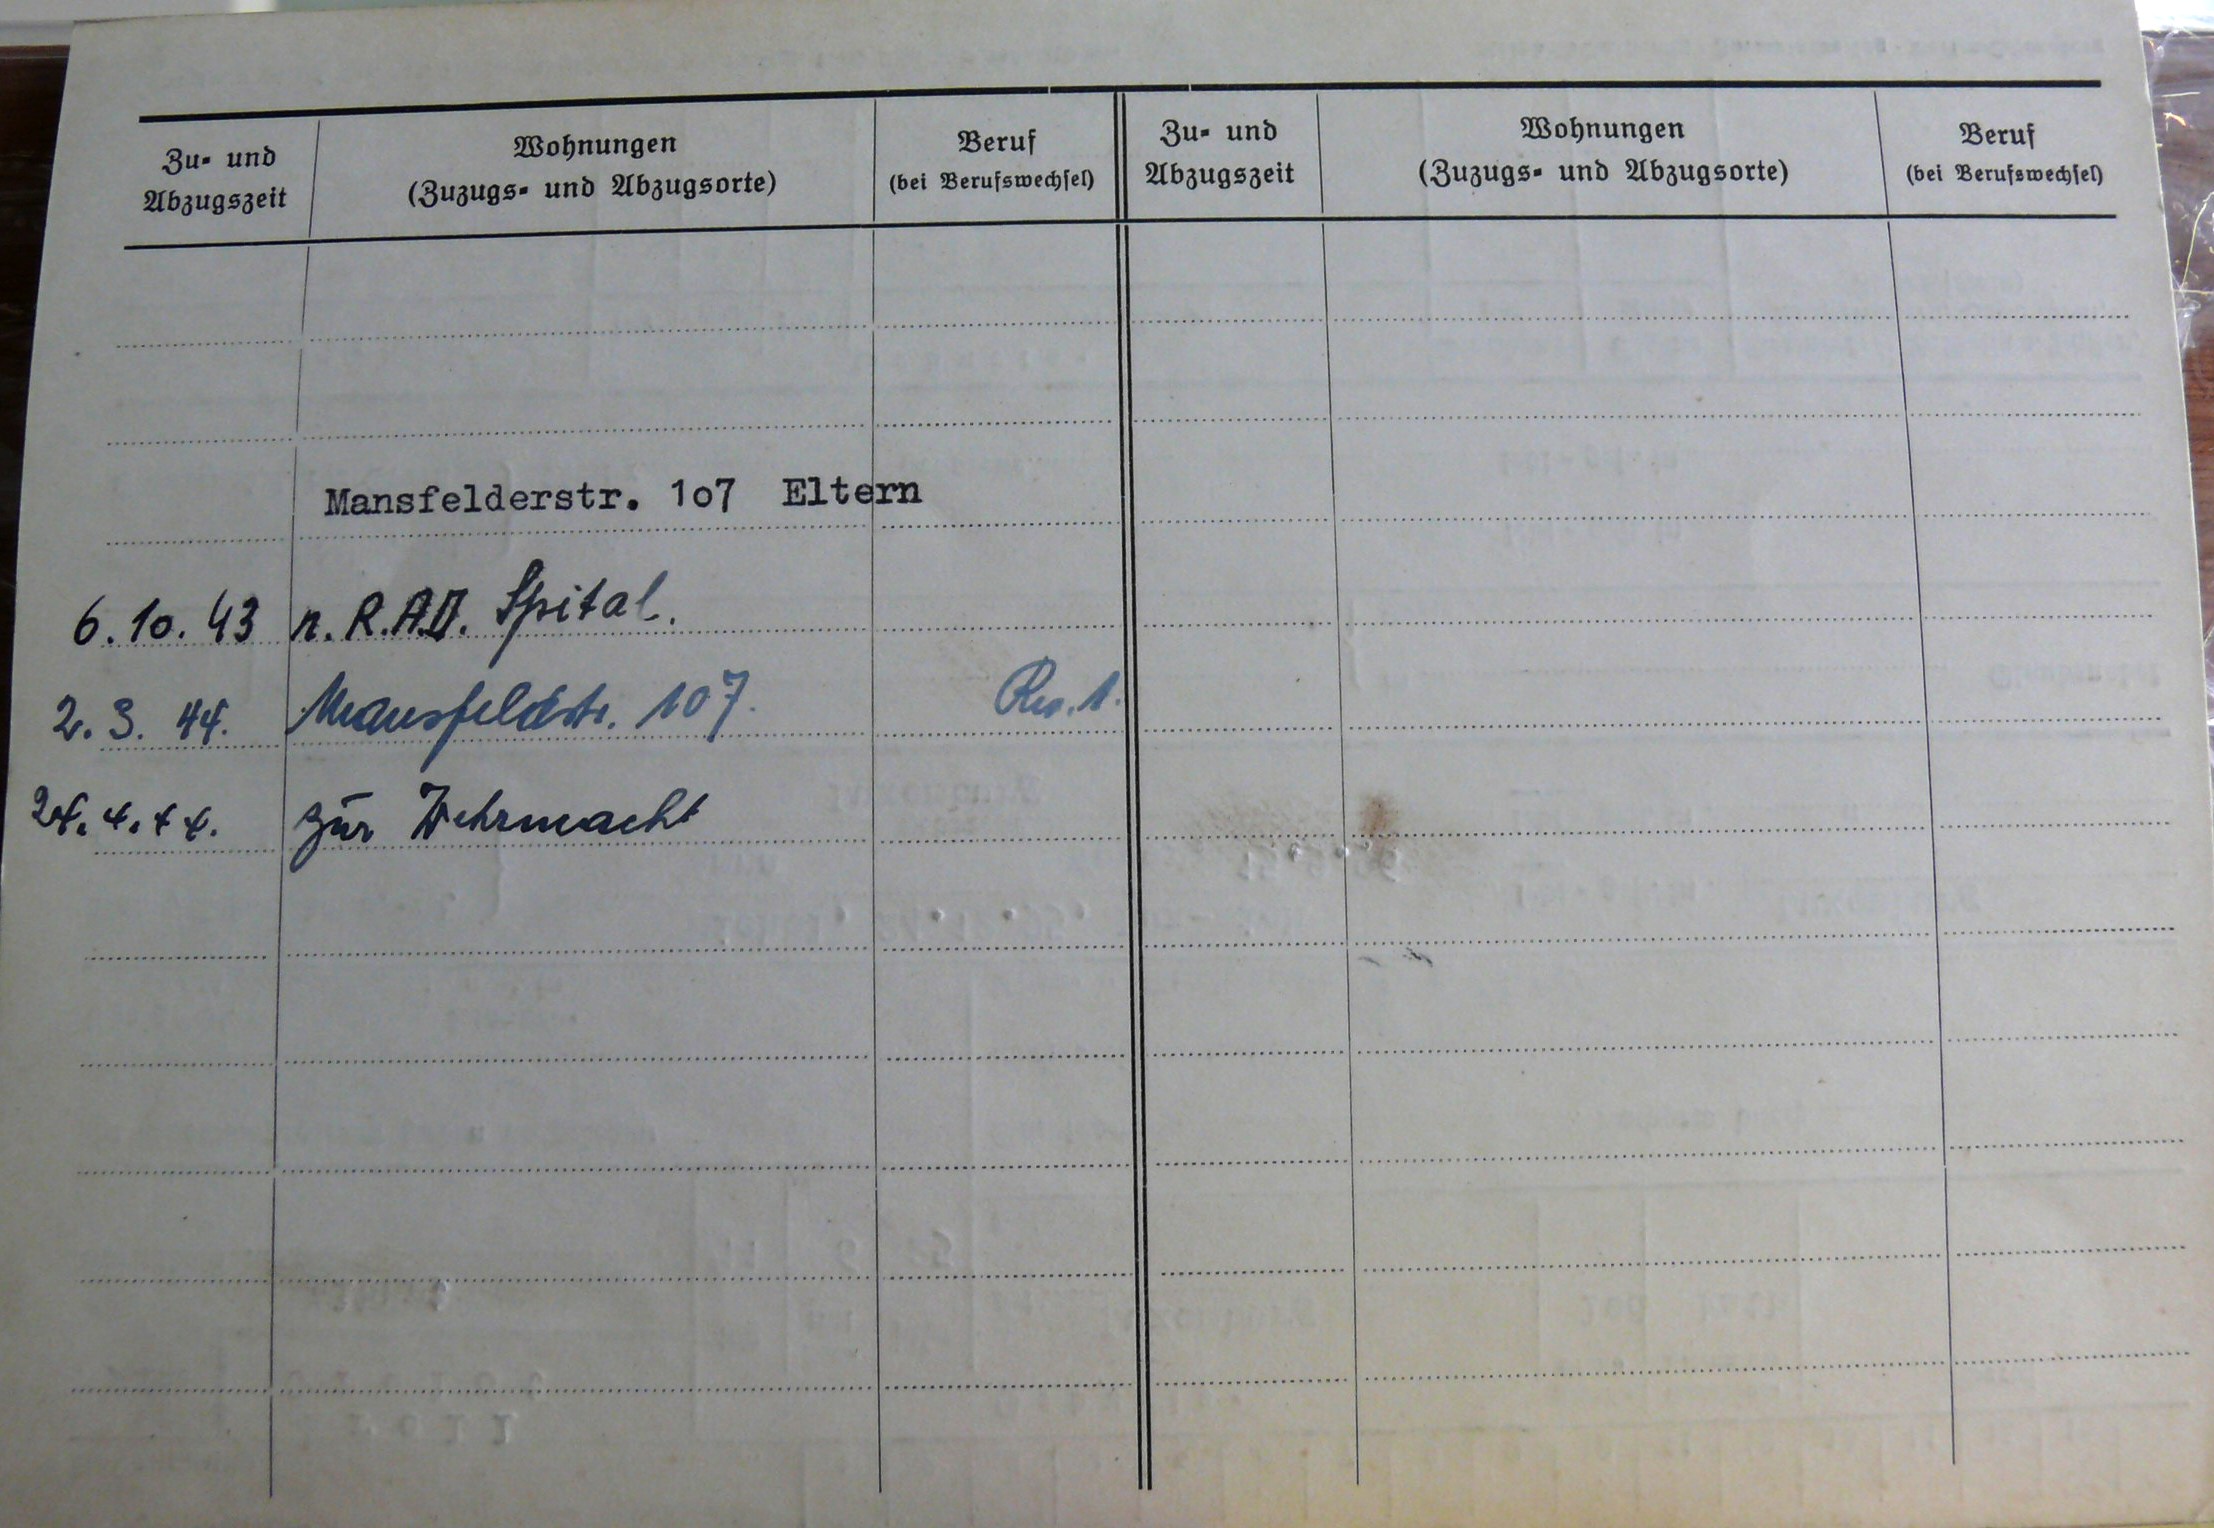 Zu- und Abzugszeit
Wohnungen
(Zuzugs- und Abzugsorte)
Beruf
(bei Berufswechsel)
Zu- und Abzugszeit
Wohnungen
(Zuzugs- und Abzugsorte)
Beruf
(bei Berufswechsel)
Mansfelderstr. 1o7 Eltern
6.10.43 n. R.A.D. Spital.
2.3.44. Mansfeldstr. 107. Rev. 1.
24.4.44. zur Wehrmacht